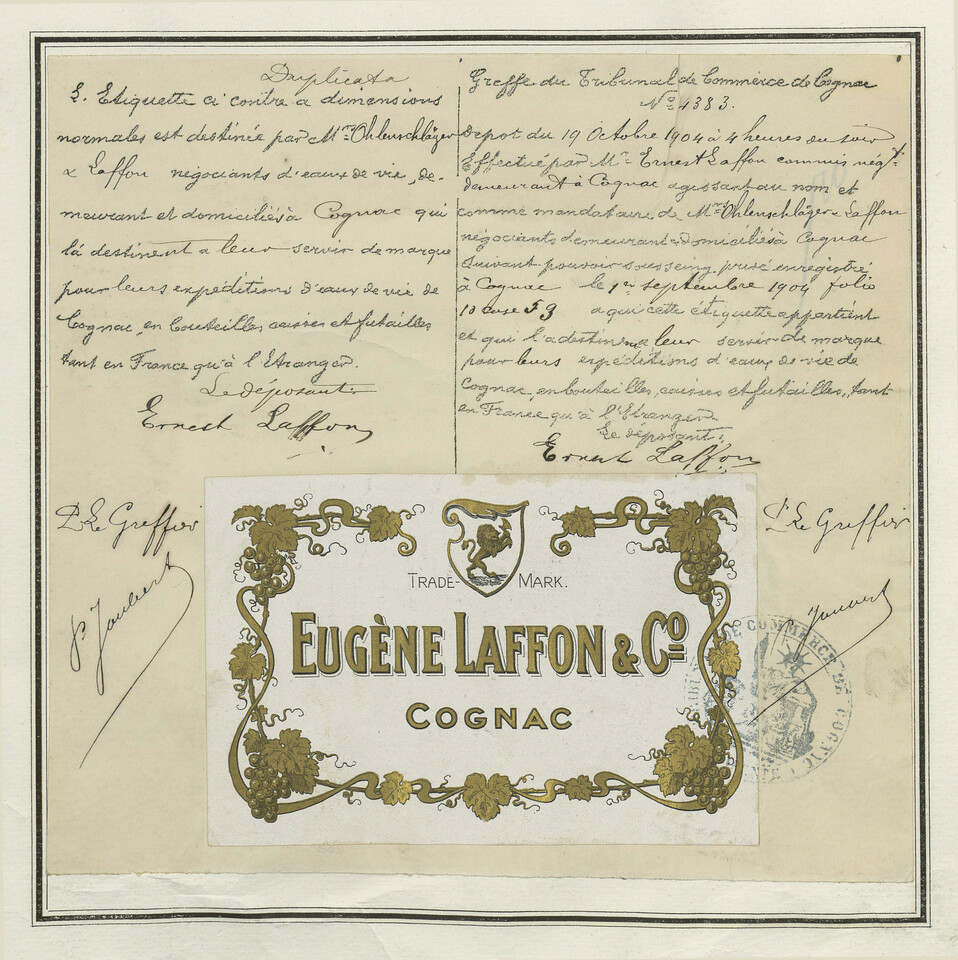 Duplicata
L. Etiquette ci contre a dimensions
normales est destinée par Mrs Ohlenschläger
& Laffon négociants d'eaux de vie, de-
meurant et domiciliés à Cognac qui
la destinent a leur servir de marque
pour leurs expéditions d'eaux de vie de
Cognac, en bouteilles, caisses et futailles
tant en France qu'à l'Etranger.
Le déposant.
Ernest Laffon
Greffe du Tribunal de Commerce de Cognac
No 1383.
Depot du 19 Octobre 1904 à 4 heures du soir
Effectué par Mr Ernest Laffon commis négt
demeurant à Cognac agissant au nom et
comme mandataire de Mrs Ohlenschläger & Laffon
négociants demeurant & domiciliés à Cognac
suivant pouvoir sous seing privé enregistré
à Cognac le 1er septembre 1904 folio
10 case 53 a qui cette étiquette appartient
et qui l'a destinent a leur servir de marque
pour leurs expéditions d'eaux de vie de
Cognac, en bouteilles, caisses et futailles, tant
en France qu'à l'Etranger
Le déposant.
Ernest Laffon
P. Le Greffier
P. Le Greffier
TRADE-MARK.
EUGÈNE LAFFON & Co
COGNAC
DE COMMERCE DE COGNAC